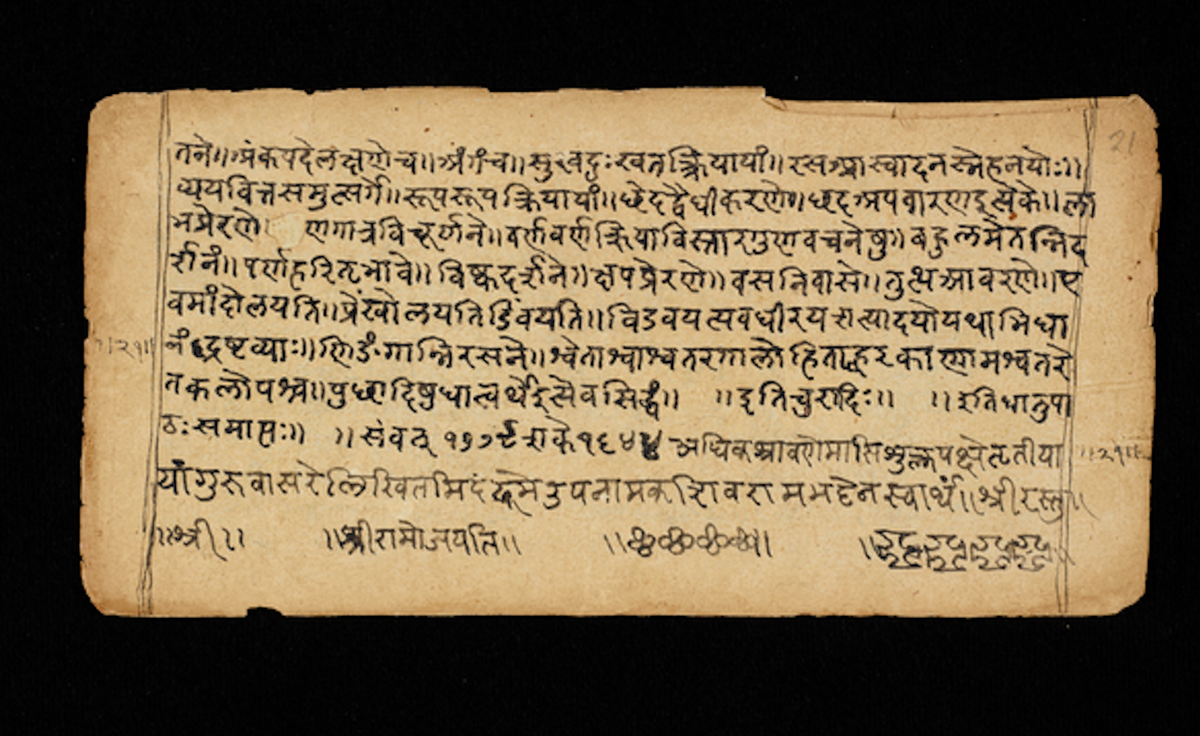 तने॥अंकपदेलक्षणेच॥अंगंच॥सुखदुःखतत्क्रियायां॥रसआस्वादनस्नेहनयोः॥
व्ययवित्तसमुत्सर्गे॥रूपरूपक्रियायां॥छेदद्वैधीकरणे॥छदअपवारणइत्येके॥ला
भप्रेरणे॥ णगात्रविचूर्णने॥वर्णवर्णक्रियाविस्तारगुणवचनेषु॥बहुलमेतन्निद
र्शनं॥पर्णहरितभावे॥विष्कदर्शने॥क्षपप्रेरणे॥वसनिवासे॥तुत्थआवरणे॥ए
वमांदोलयति॥प्रेंखोलयतिडिंवयति॥विडवयत्सवधीरयत्यादयोयथाभिधा
नंद्रष्टव्याः॥णिङंगान्निरसने॥श्वेताश्वाश्वतरगालोहिताह्वरकाणामश्वतरे
तकलोपश्च॥पुछादिषुधात्वर्थेइत्येवसिद्धं॥ ॥इतिचुरादिः॥ ॥इतिधातुपा
ठःसमाप्तः॥ ॥संवत् १७७९शके१६४४ अधिकश्रावणेमासिशुक्लपक्षेतृतीया
॥२१॥
यांगुरुवासरेलिखितमिदं उपनामकशिवरामभट्टेनस्वार्थं॥श्रीरस्तु॥
॥श्री॥ ॥श्रीरामोजयति॥
21